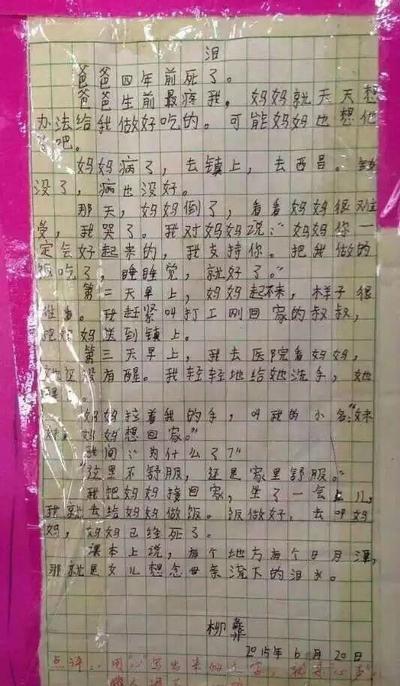 泪
爸爸四年前死了。
爸爸生前最疼我,妈妈就天天想
办法给我做好吃的。可能妈妈也想他
了吧。
妈妈病了,去镇上,去西昌。钱
没了,病也没好。
那天,妈妈倒了,看看妈妈很难
受,我哭了。我对妈妈说:“妈妈你一
定会好起来的,我支持你。把我做的
饭吃了,睡睡觉,就好了。”
第二天早上,妈妈起不来,样子很
难看。我赶紧叫打工刚回家的叔叔,
把妈妈送到镇上。
第三天早上,我去医院看妈妈,
她还没有醒。我轻轻地给她洗手,她
醒了。
妈妈拉着我的手,叫我的小名:“妹
妹,妈妈想回家。”
我问:“为什么了?”
“这里不舒服,还是家里舒服。”
我把妈妈接回家,坐了一会儿,
我就去给妈妈做饭。饭做好,去叫妈
妈,妈妈已经死了。
课本上说,有个地方有个日月潭,
那就是女儿想念母亲流下的泪水。
柳彝
2015年6月20日
点评:用“心”写出来的